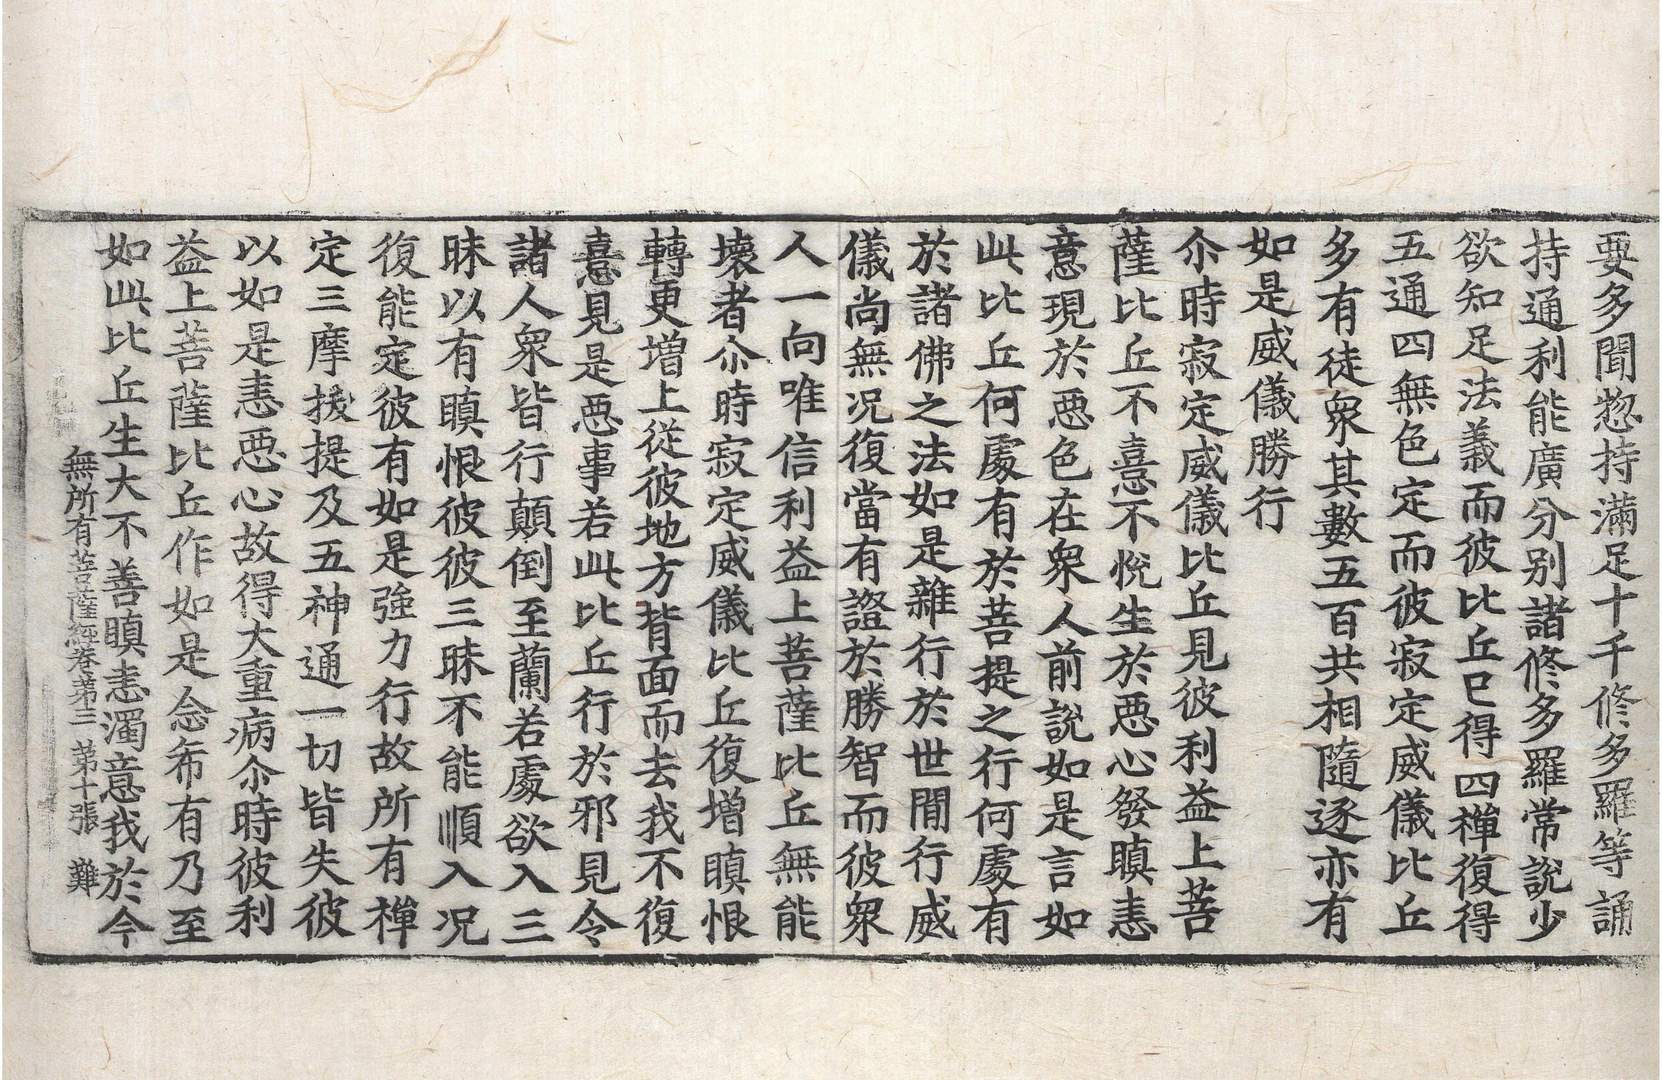 要多聞惣持滿足十千修多羅等誦
持通利能廣分別諸修多羅常說少
欲知足法義而彼比丘已得四禪復得
五通四無色定而彼寂定威儀比丘
多有徒衆其數五百共相隨逐亦有
如是威儀勝行
尒時寂定威儀比丘見彼利益上菩
薩比丘不憙不悅生於惡心發瞋恚
意現於惡色在衆人前說如是言如
此比丘何處有於菩提之行何處有
於諸佛之法如是雜行於世間行威
儀尚無況復當有證於勝智而彼衆
人一向唯信利益上菩薩比丘無能
壞者尒時寂定威儀比丘復增瞋恨
轉更增上從彼地方背面而去我不復
憙見是惡事若此比丘行於邪見令
諸人衆皆行顛倒至蘭若處欲入三
昧以有瞋恨彼彼三昧不能順入況
復能定彼有如是強力行故所有禪
定三摩拔提及五神通一切皆失彼
以如是恚惡心故得大重病尒時彼利
益上菩薩比丘作如是念希有乃至
如此比丘生大不善瞋恚濁意我於今
無所有菩薩經卷第三 第十張 難